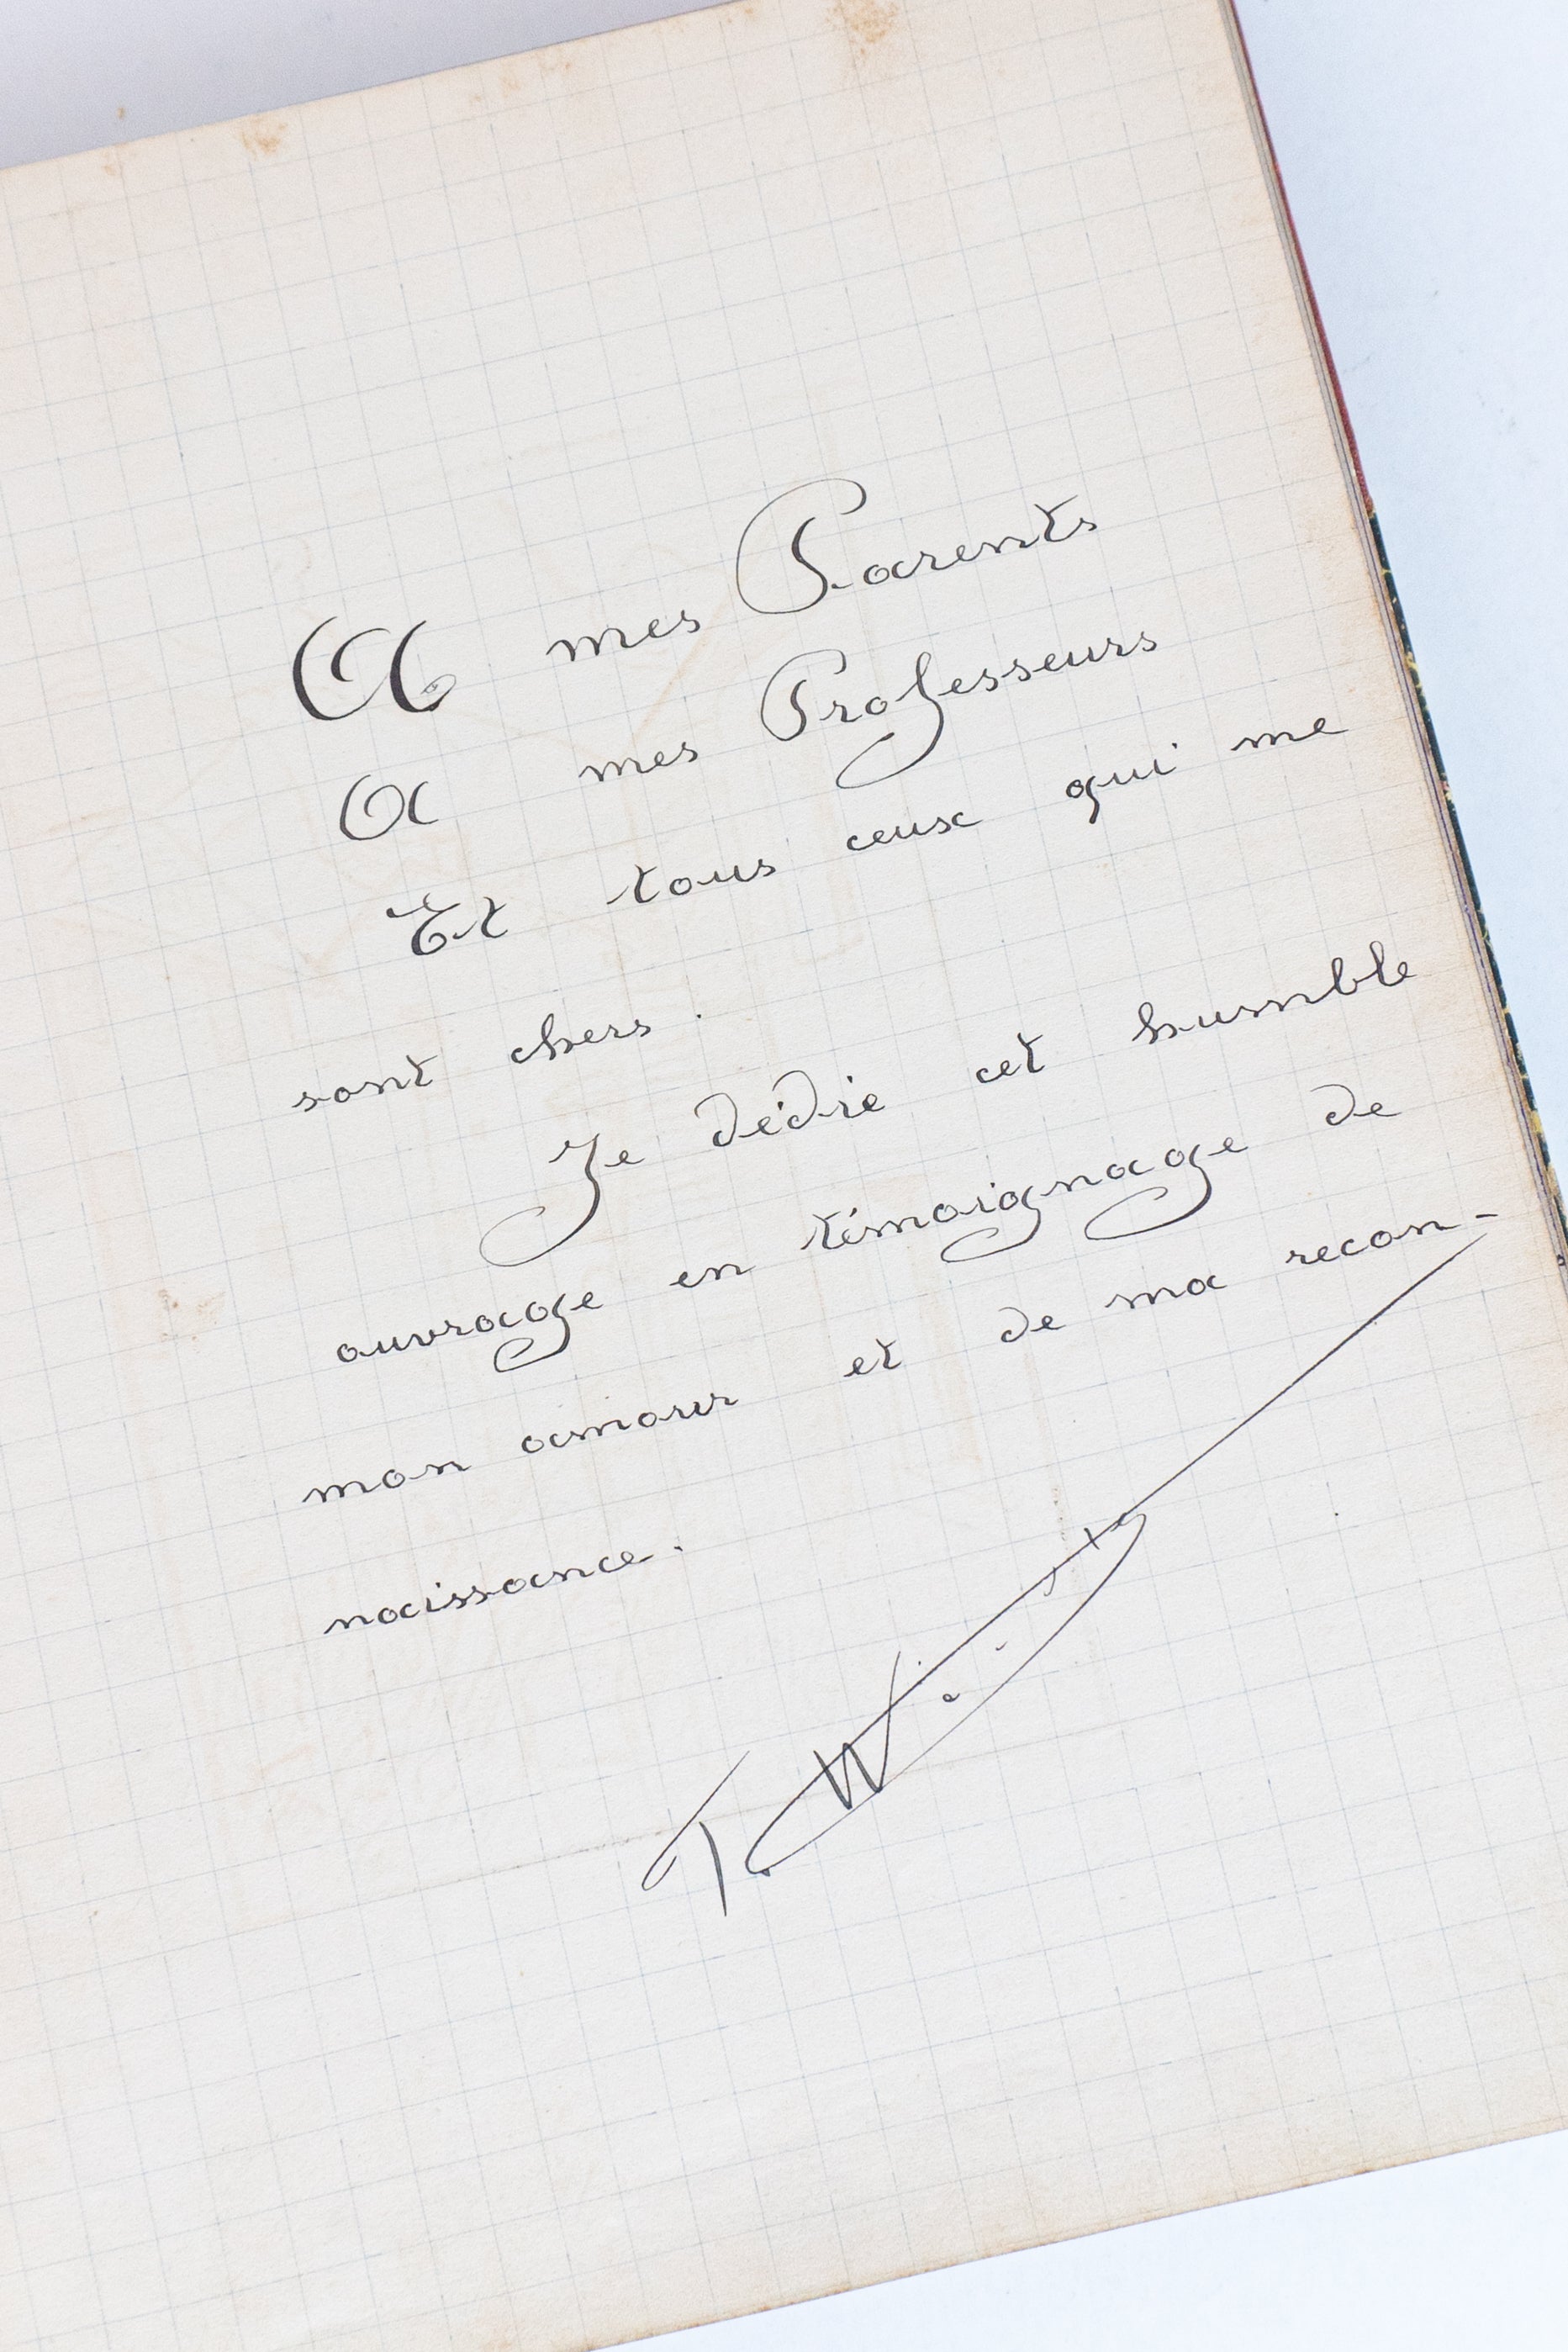 A mes Parents
A mes Professeurs
Et tous ceux qui me
sont chers.
Je dédie cet humble
ouvrage en témoignage de
mon amour et de ma recon-
naissance.